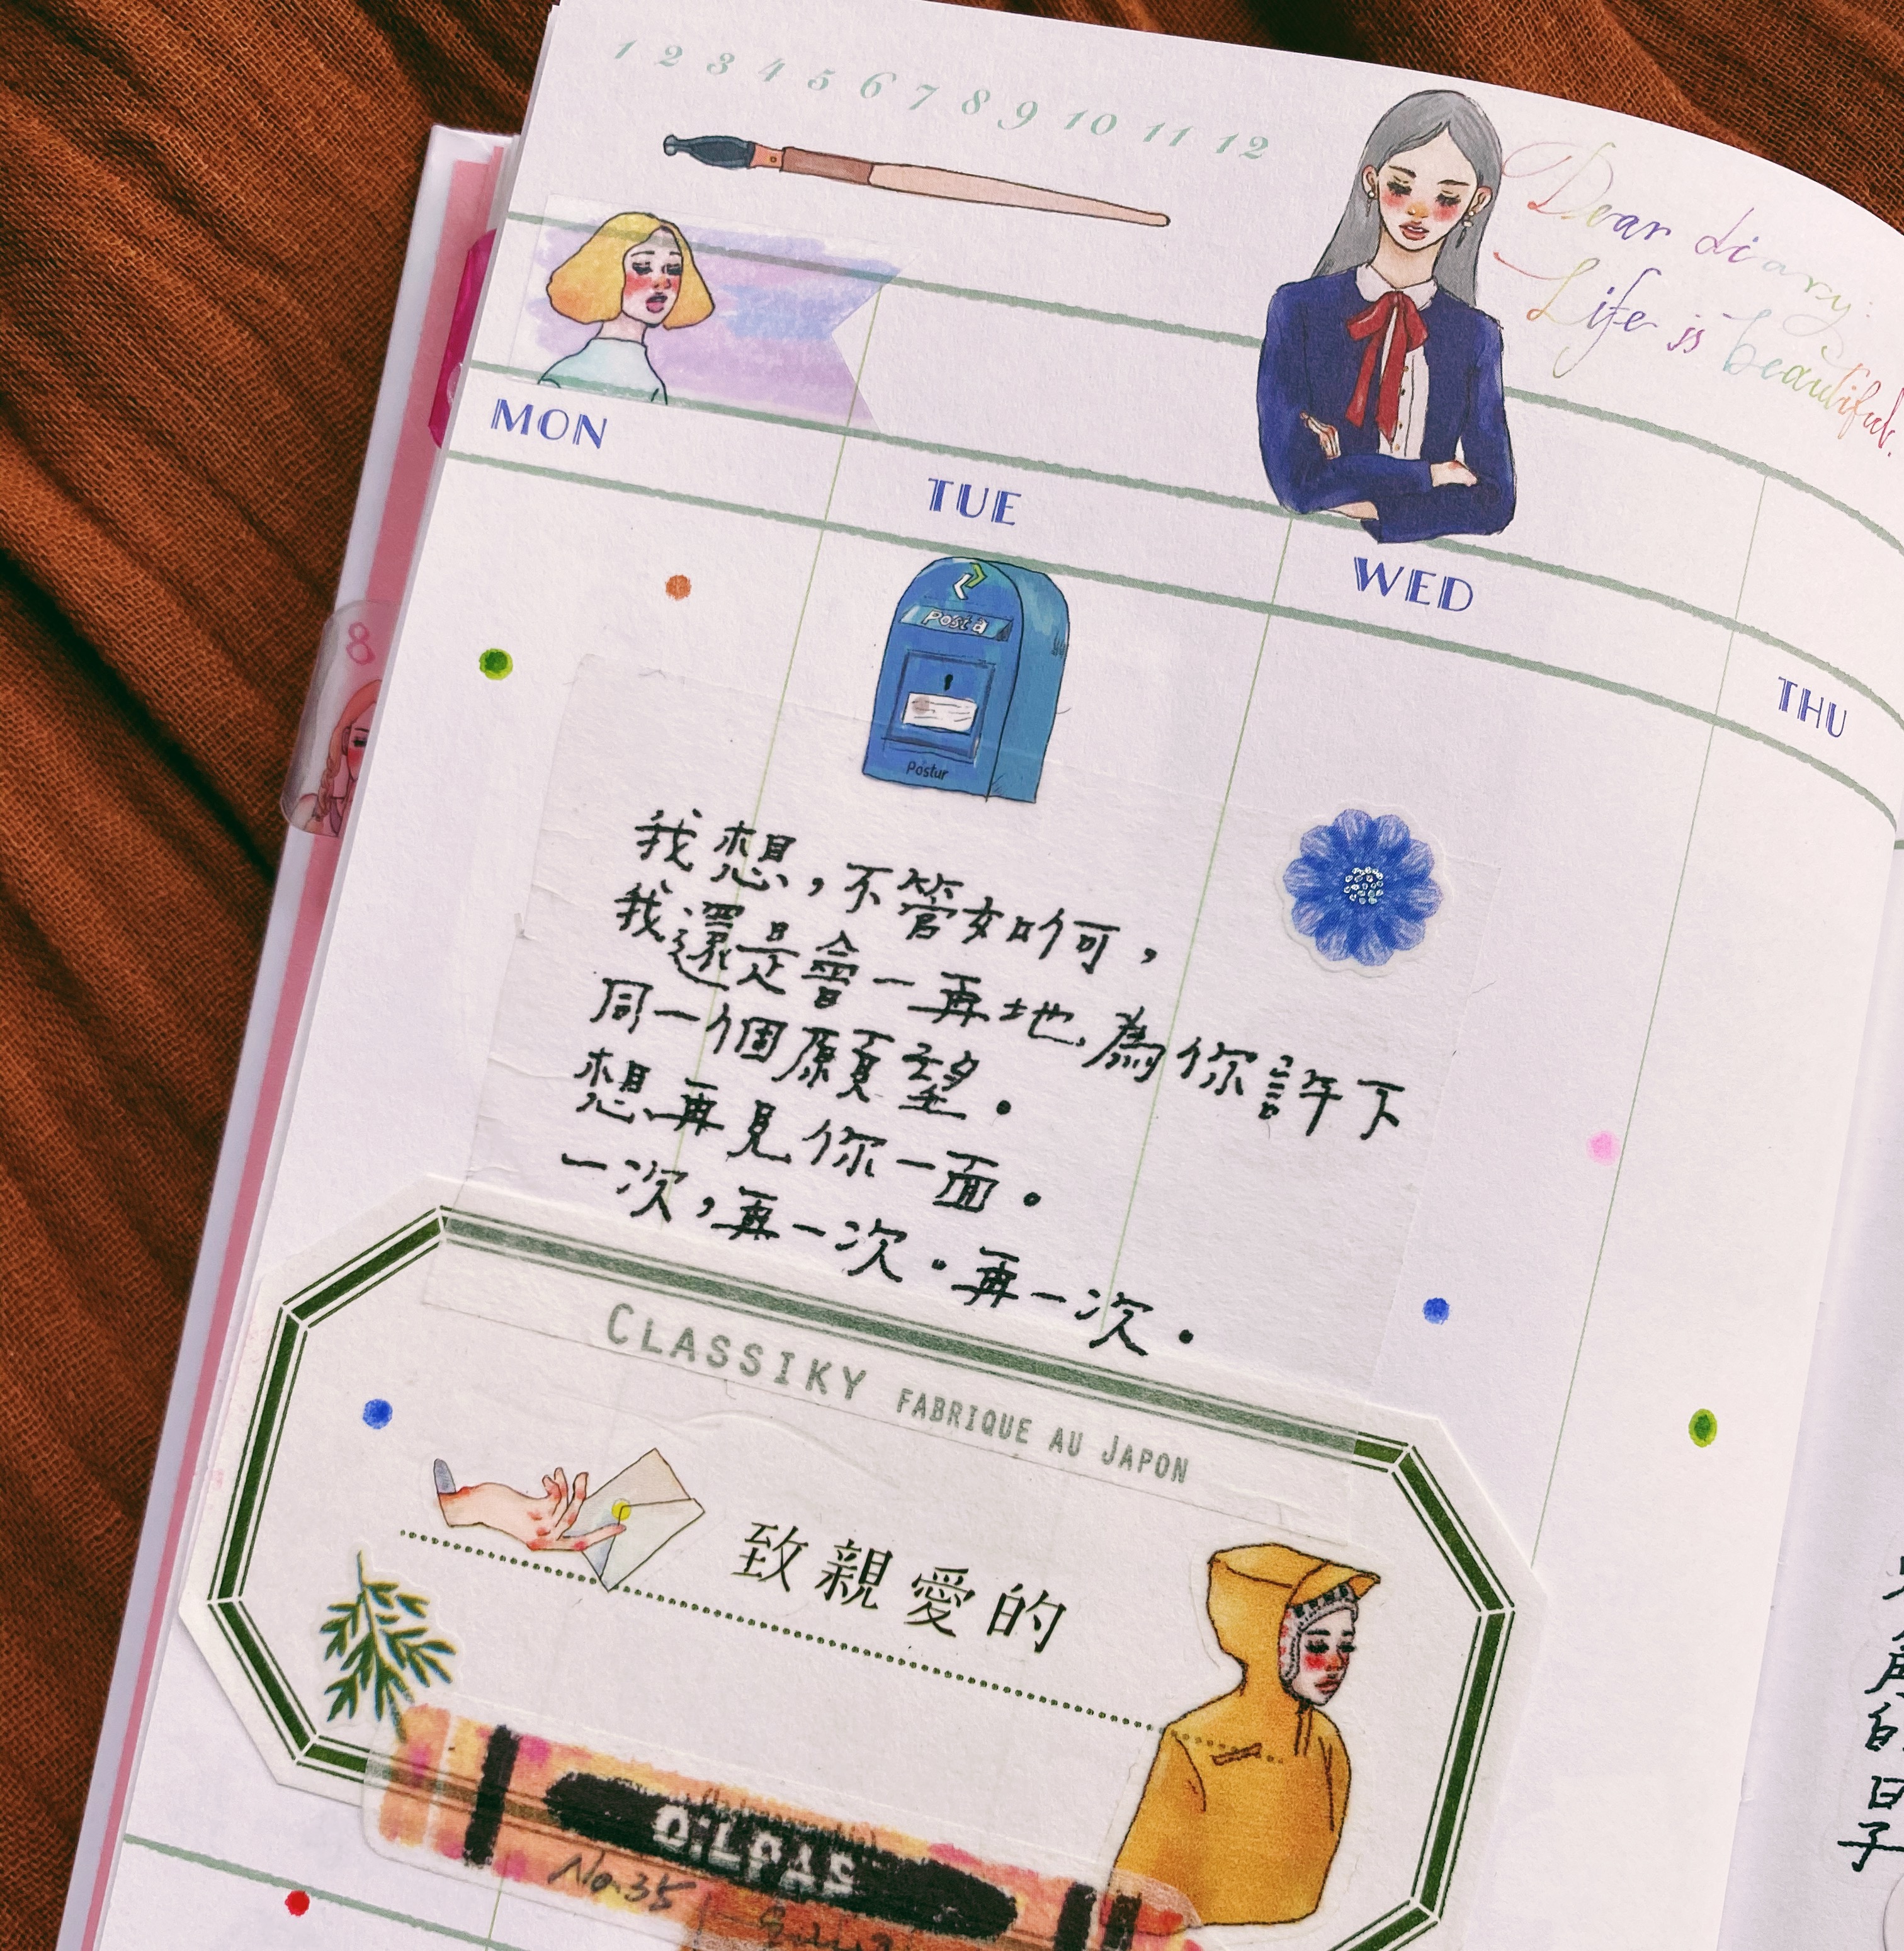 1 2 3 4 5 6 7 8 9 10 11 12
Dear diary:
Life is beautiful.
MON
TUE
WED
THU
8
Posta
Postur
我想，不管如何，
我還是會一再地為你許下
同一個願望。
想再見你一面。
一次，再一次。再一次。
CLASSIKY FABRIQUE AU JAPON
致親愛的
No.35
的
日
子